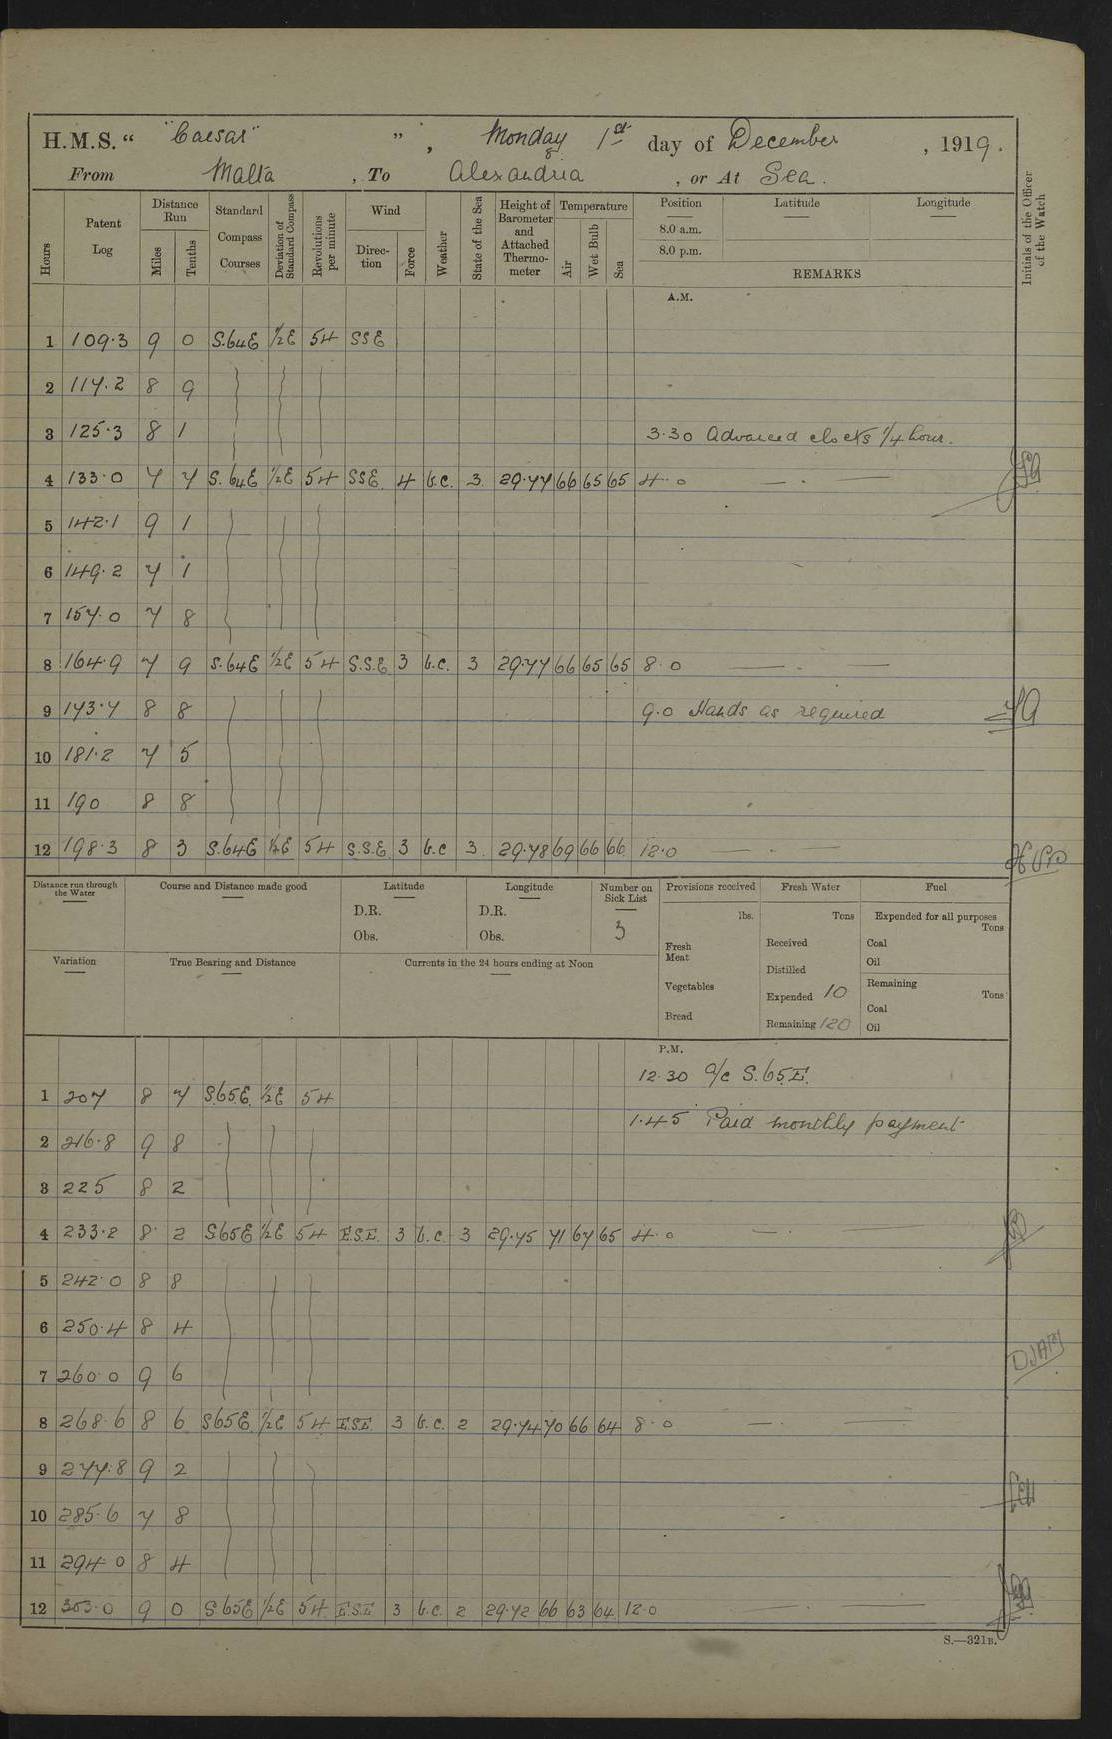 H.M.S. " "Caesar" ", Monday 1st day of December, 1919.
From Malta, To Alexandria, or At Sea.
Hours
Patent Log
Distance Run
Miles
Tenths
Standard Compass Courses
Deviation of Standard Compass
Revolutions per minute
Wind
Direction
Force
Weather
State of the Sea
Height of Barometer and Attached Thermometer
Temperature
Air
Wet Bulb
Sea
Position
Latitude
Longitude
8.0 a.m.
8.0 p.m.
REMARKS
Initials of the Officer of the Watch
A.M.
1 109.3 9 0 S.64E ½E 54 SSE
2 117.2 8 9
3 125.3 8 1 3.30 Advanced clocks ¼ hour.
4 133.0 7 7 S.64E ½E 54 SSE 4 b.c. 3 29.77 66 65 65 4.0 — . —
5 142.1 9 1
6 149.2 7 1
7 157.0 7 8
8 164.9 7 9 S.64E ½E 54 S.S.E 3 b.c. 3 29.77 66 65 65 8.0 — . —
9 173.7 8 8 9.0 Hands as required
10 181.2 7 5
11 190 8 8
12 198.3 8 3 S.64E ½E 54 S.S.E 3 b.c 3 29.78 69 66 66 12.0 — . —
Distance run through the Water
Course and Distance made good
Latitude
D.R.
Obs.
Longitude
D.R.
Obs.
Number on Sick List
3
Provisions received
lbs.
Fresh Meat
Vegetables
Bread
Fresh Water
Tons
Received
Distilled
Expended 10
Remaining 120
Fuel
Expended for all purposes
Tons
Coal
Oil
Remaining
Tons
Coal
Oil
Variation
True Bearing and Distance
Currents in the 24 hours ending at Noon
P.M.
12.30 a/c S.65E.
1 207 8 7 S65E ½E 54
1.45 Paid monthly payment
2 216.8 9 8
3 225 8 2
4 233.2 8 2 S65E ½E 54 E.S.E. 3 b.c. 3 29.75 71 67 65 4.0 — .
5 242.0 8 8
6 250.4 8 4
7 260.0 9 6
8 268.6 8 6 S65E ½E 54 ESE 3 b.c. 2 29.74 70 66 64 8.0 — . —
9 277.8 9 2
10 285.6 7 8
11 294.0 8 4
12 303.0 9 0 S.65E ½E 54 E.S.E 3 b.c. 2 29.72 66 63 64 12.0 — . —
S.—321B.